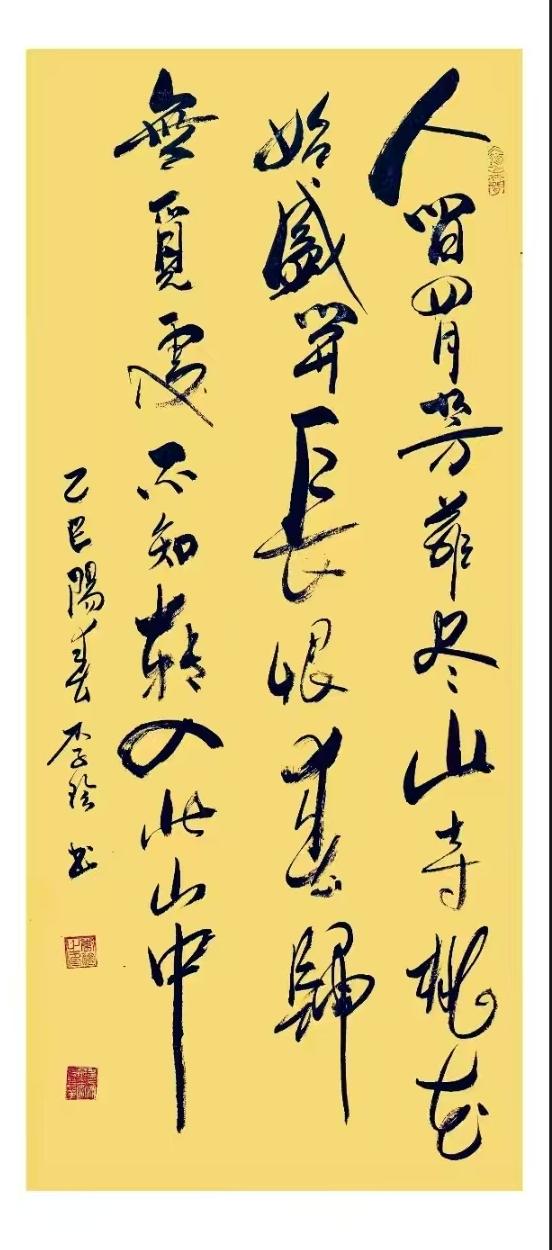 人間四月芳菲尽山寺桃花
始盛開長恨春歸
無覓處不知轉入此山中
乙巳陽春 李 書